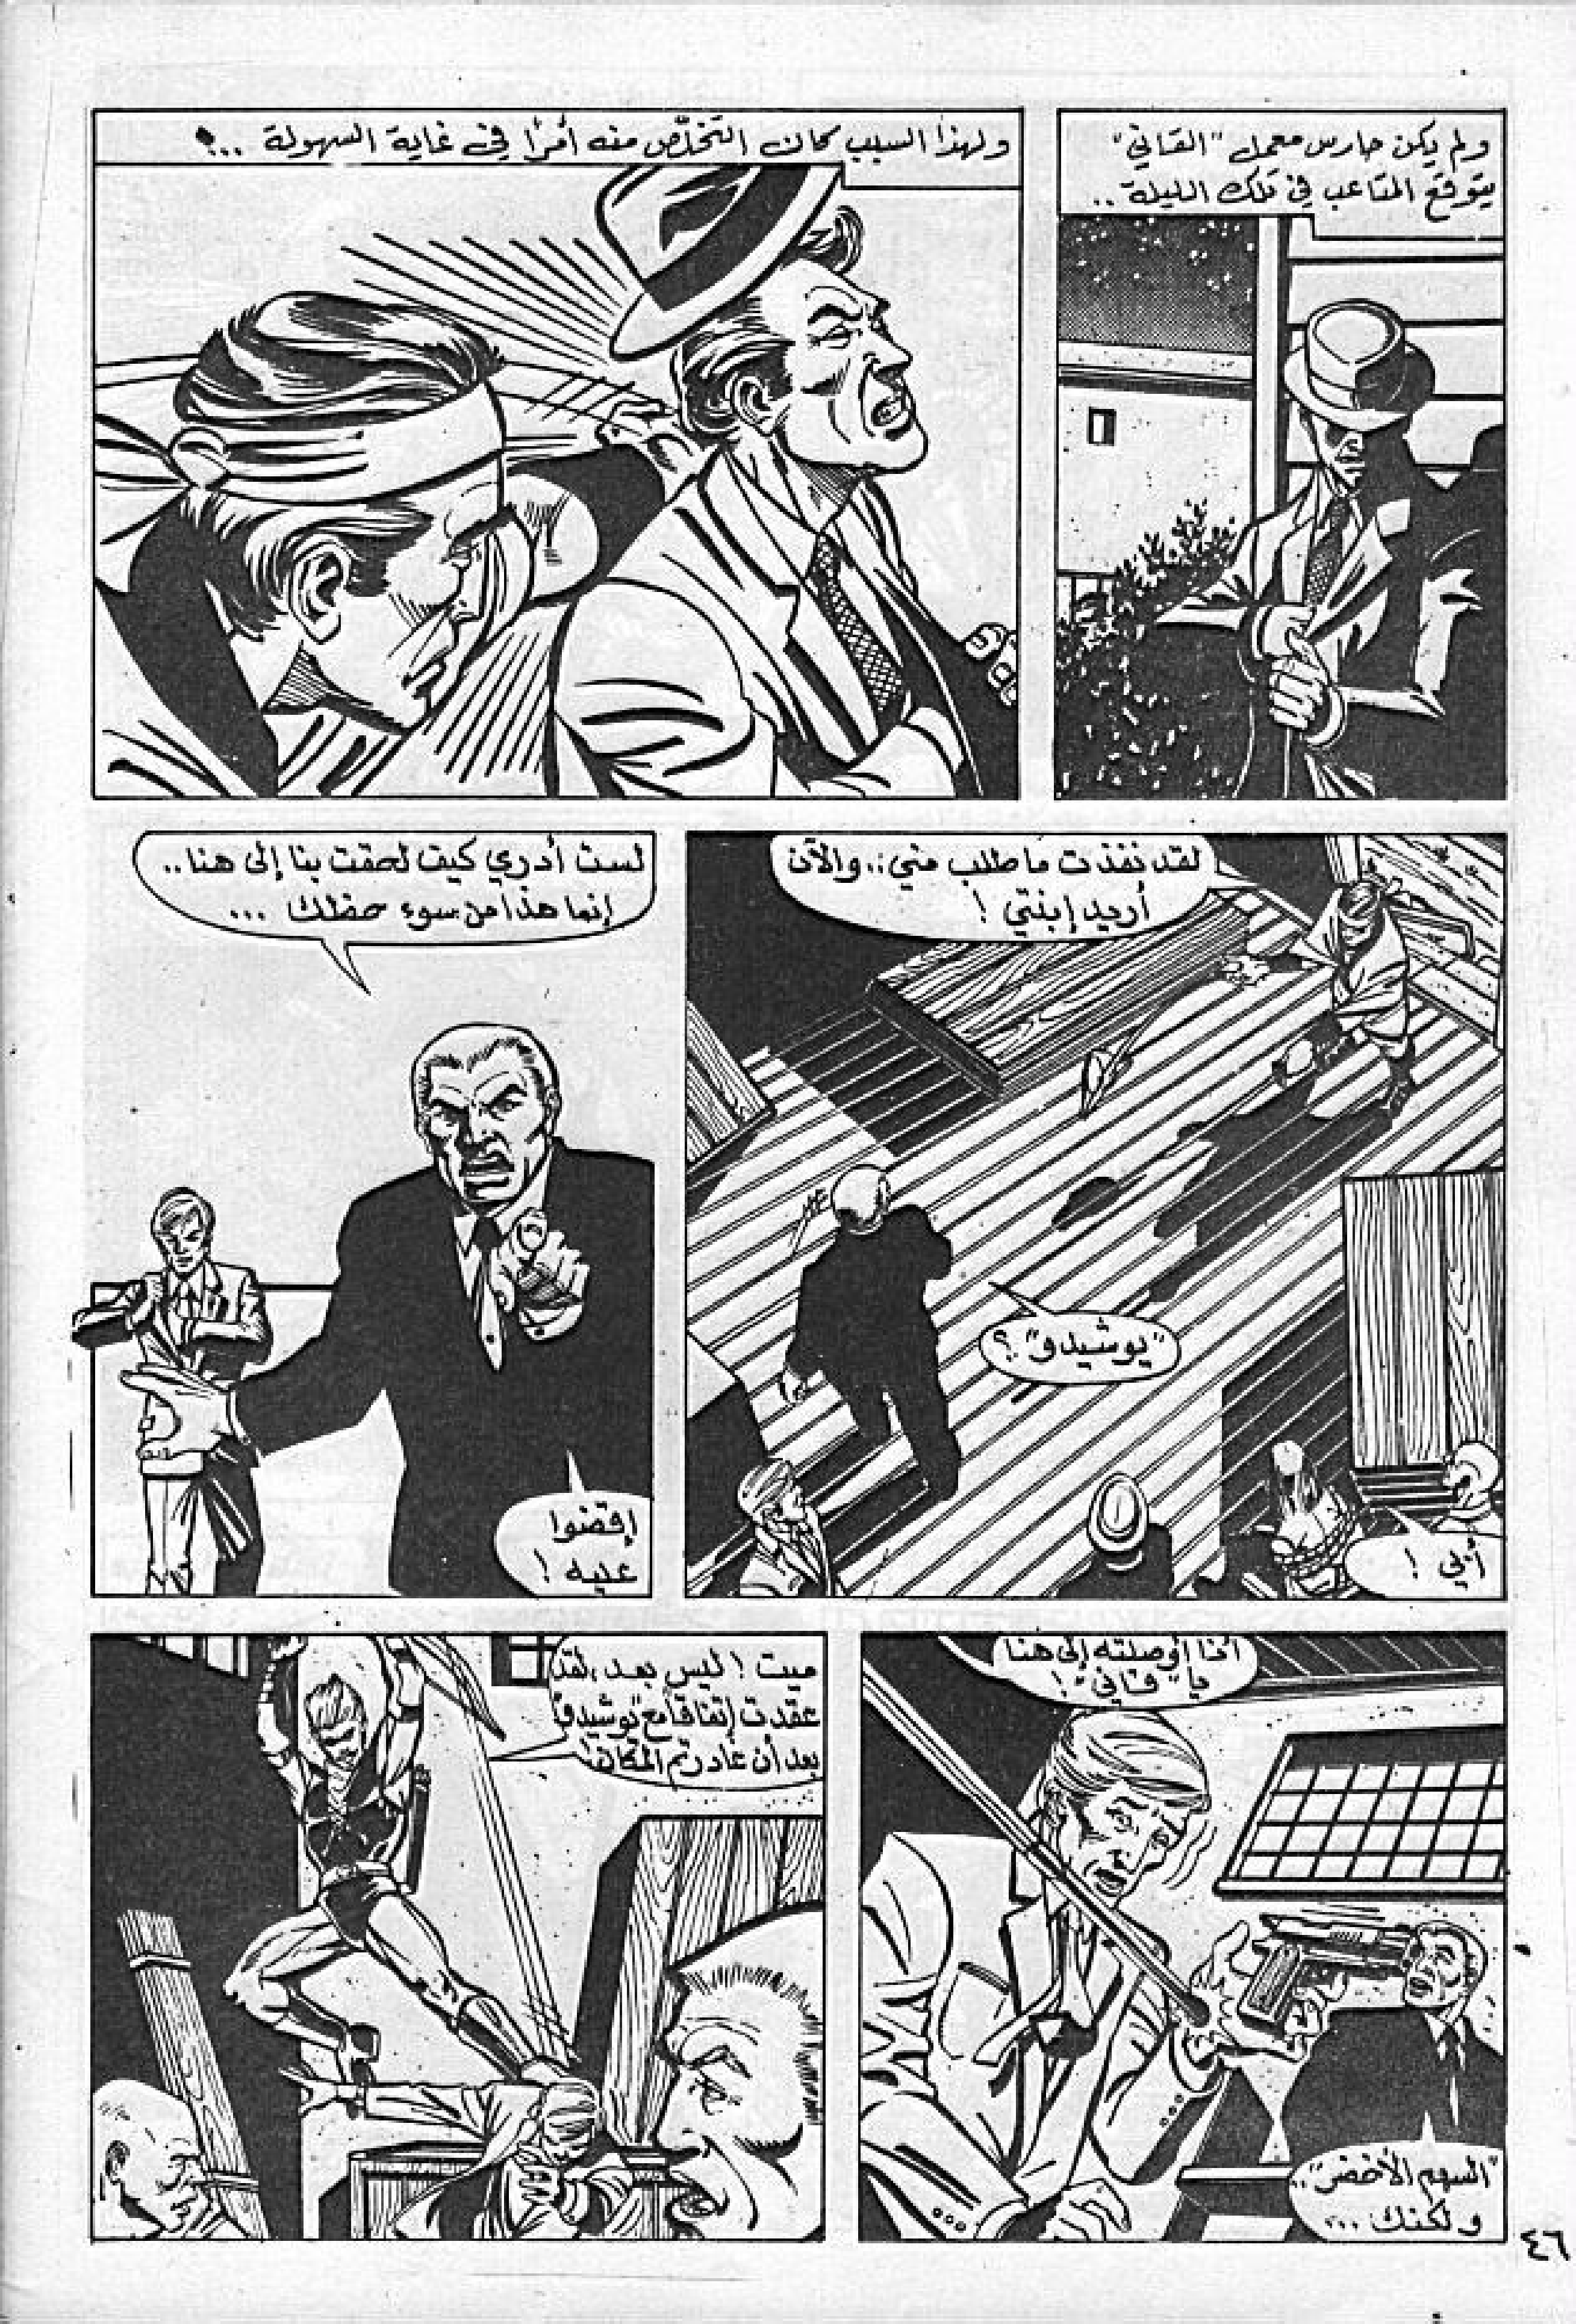 ولم يكن حارس معمل "القاني"
يتوقع المتاعب في تلك الليلة ..
ولهذا السبب كان التخلّص منه أمرًا في غاية السهولة ..!
لقد نفذت ما طلب مني .. والآن
أريد إبنتي !
"يوشيدو" ؟
أبي !
لست أدري كيف لحقت بنا إلى هنا ..
إنما هذا من سوء حظك ...
إقضوا
عليه !
أنا أوصلته إلى هنا
يا "قاني" !
"السهم الأخضر" ..
ولكنك ...
ميت ! ليس بعد ، لقد
عقدت إتفاقا مع "يوشيدو"
بعد أن غادرتم المكان !
٤٦